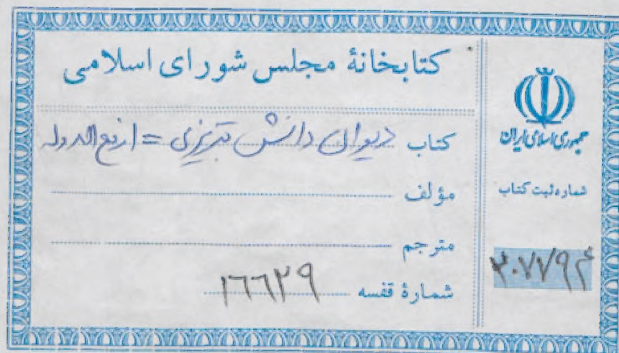 کتابخانهٔ مجلس شورای اسلامی
کتاب دیوان دانش تبریزی = ارفع الدوله
مؤلف
مترجم
شمارهٔ قفسه ۱۶۶۲۹
جمهوری اسلامی ایران
شماره ثبت کتاب
۳۰۷۷۹۴